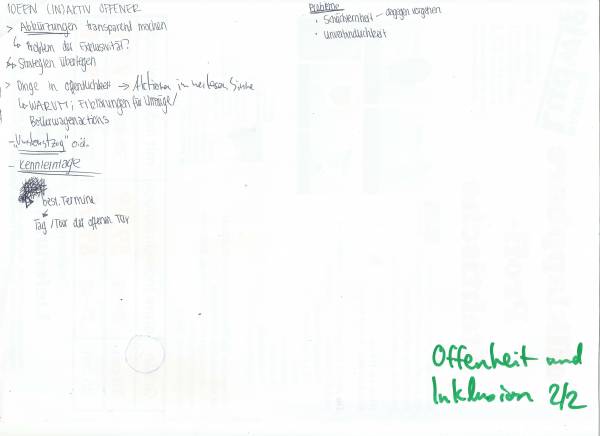 IDEEN (IN)AKTIV OFFENER
> Abkürzungen transparent machen
↳ Problem der Exklusivität?
↳ Strategien überlegen
> Dinge in Öffentlichkeit → Aktionen im weitesten Sinne
↳ WARUM; Erklärungen für Umzüge/
Bollerwagenactions
- "Umzug" o.ä.
- Kennlerntage
best. Termine
Tag / Tour der offenen Tür
Probleme
· Schüchternheit - dagegen vorgehen
· Unverbindlichkeit
Offenheit und
Inklusion 2/2